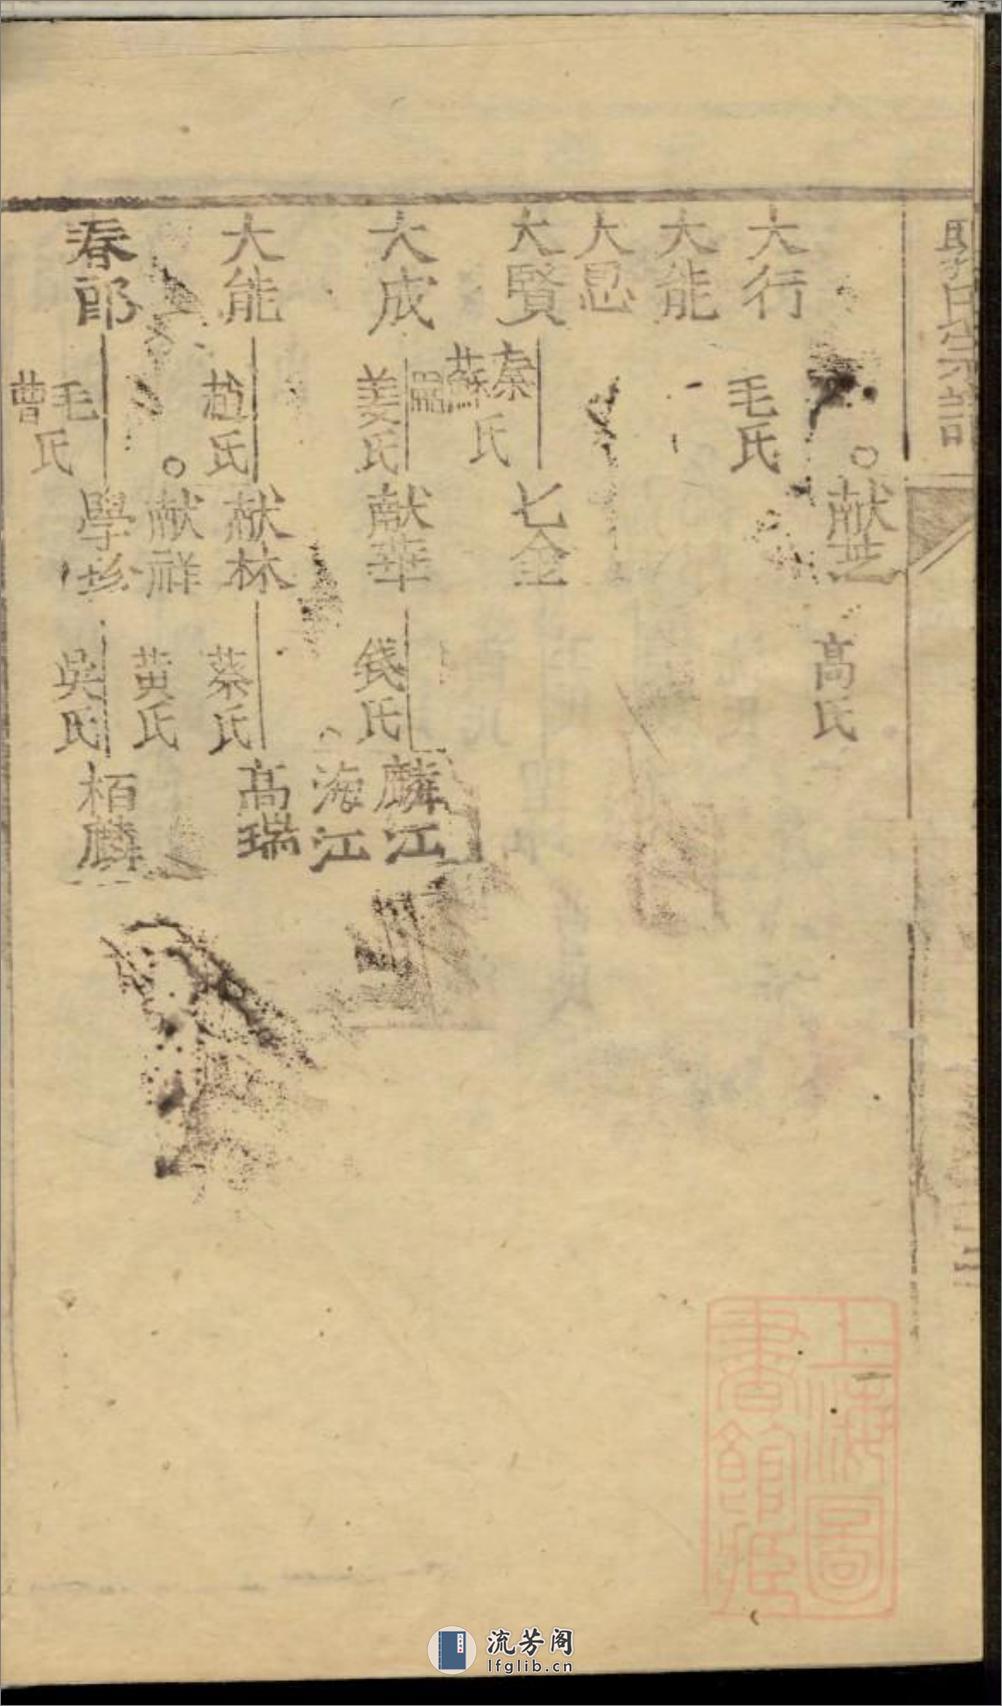 氏宗譜
献芝
高氏
大行
毛氏
大能
大恩
大賢
秦蘇氏
七金
大成
姜氏
献華
錢氏
麟江
海江
大能
趙氏
献林
蔡氏
高瑞
献祥
黄氏
春郎
毛曹氏
學珍
吳氏
栢麟
上海圖
書館藏
流芳阁
lfglib.cn